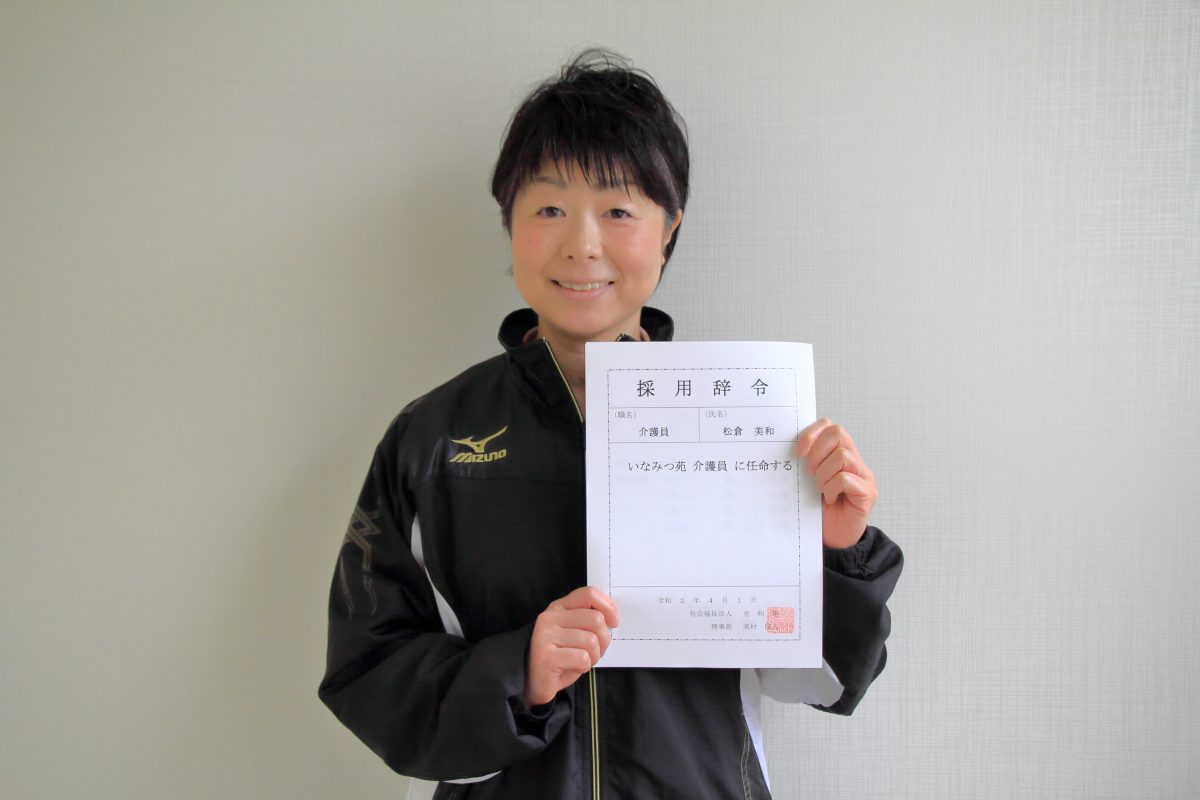 MIZUNO
採用辞令
（職名）　（氏名）
介護員　松倉　美和
いなみつ苑 介護員 に任命する
令和 2 年 4 月 1 日
社会福祉法人　光 和
理事長　髙村